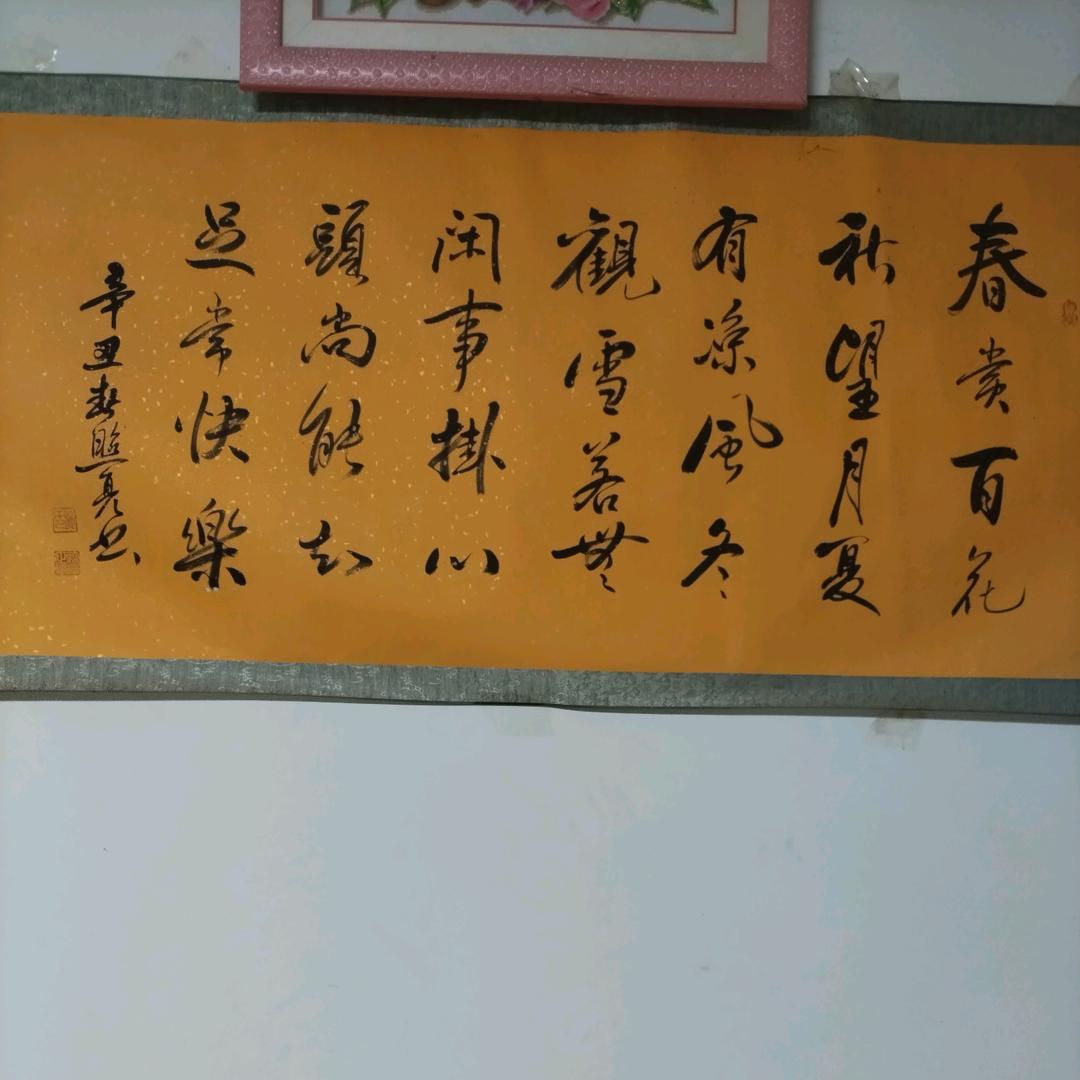 春賞百花
秋望月夏
有涼風冬
觀雪若無
闲事掛心
頭尚能知
足常快樂
辛丑春照亮书